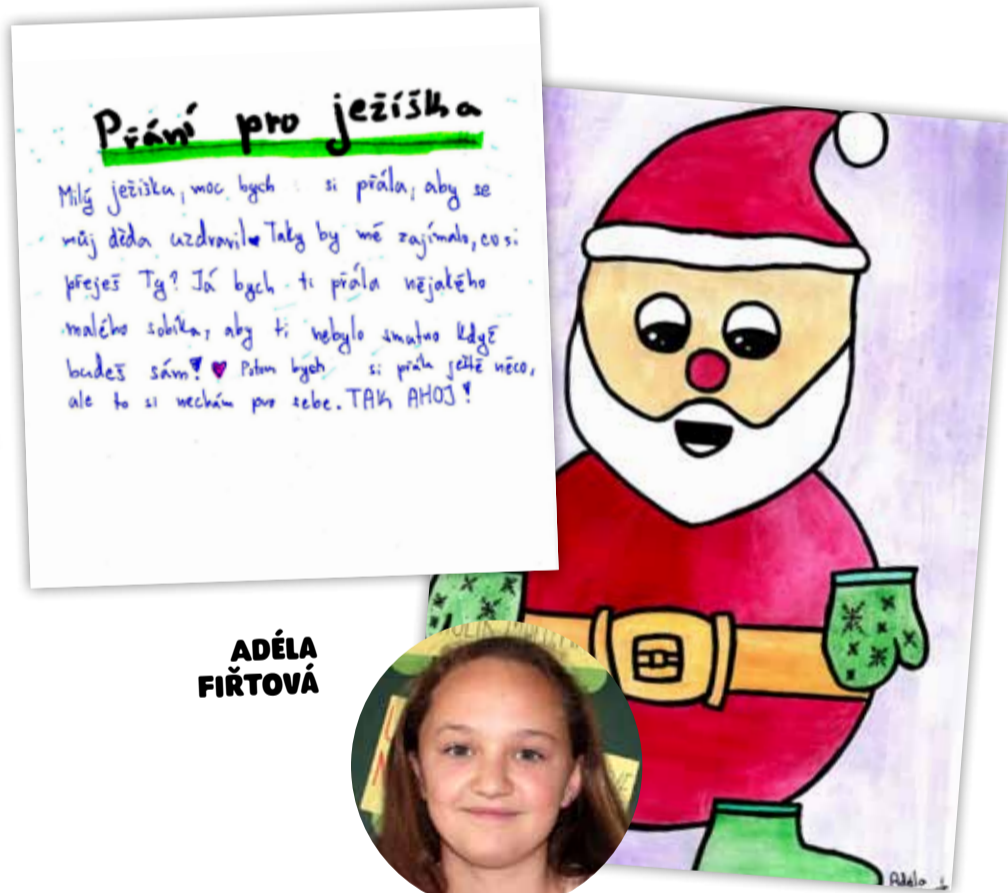 Přání pro ježíška
Milý ježíšku, moc bych si přála, aby se
můj děda uzdravil♥ Taky by mě zajímalo, co si
přeješ Ty? Já bych ti přála nějakého
malého sobíka, aby ti nebylo smutno když
budeš sám! ♥ Potom bych si přála ještě něco,
ale to si nechám pro sebe. TAK AHOJ!
ADÉLA
FIŘTOVÁ
Adéla